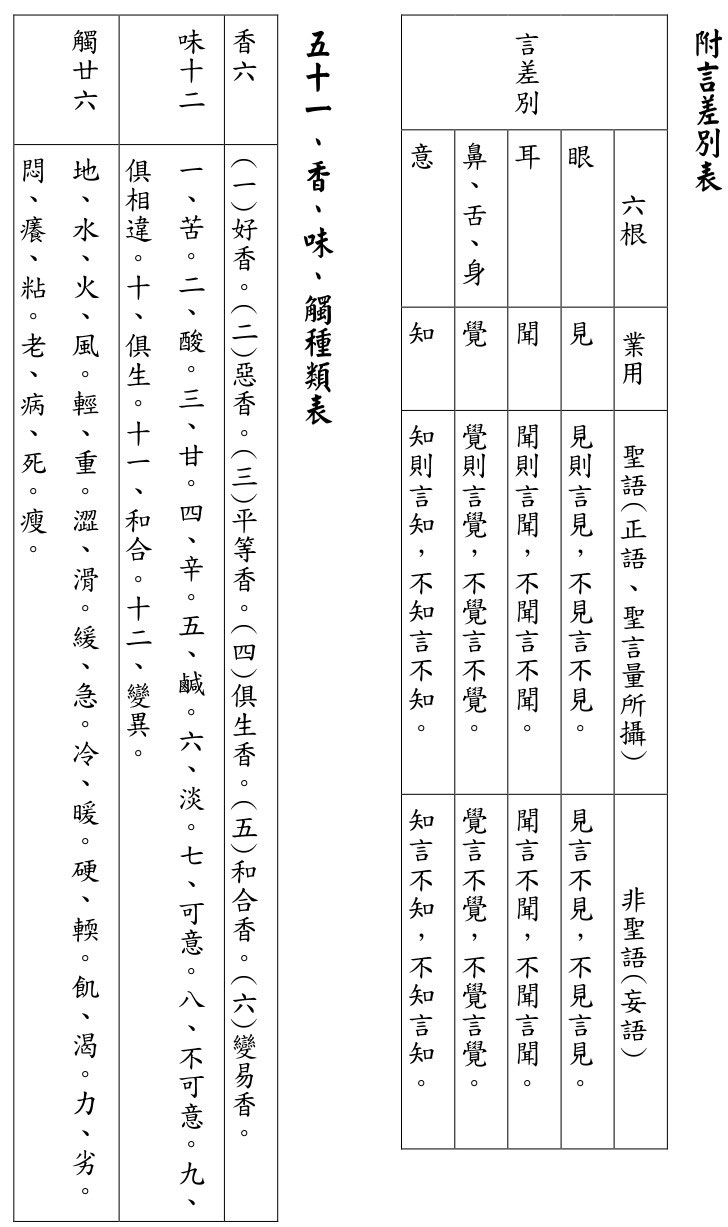 附言差別表
言差別
六根
業用
聖語(正語、聖言量所攝)
非聖語(妄語)
眼
見
見則言見，不見言不見。
見言不見，不見言見。
耳
聞
聞則言聞，不聞言不聞。
聞言不聞，不聞言聞。
鼻、舌、身
覺
覺則言覺，不覺言不覺。
覺言不覺，不覺言覺。
意
知
知則言知，不知言不知。
知言不知，不知言知。
五十一、香、味、觸種類表
香六
(一)好香。(二)惡香。(三)平等香。(四)俱生香。(五)和合香。(六)變易香。
味十二
一、苦。二、酸。三、甘。四、辛。五、鹹。六、淡。七、可意。八、不可意。九、
俱相違。十、俱生。十一、和合。十二、變異。
觸廿六
地、水、火、風。輕、重。澀、滑。緩、急。冷、暖。硬、輭。飢、渴。力、劣。
悶、癢、粘。老、病、死。瘦。